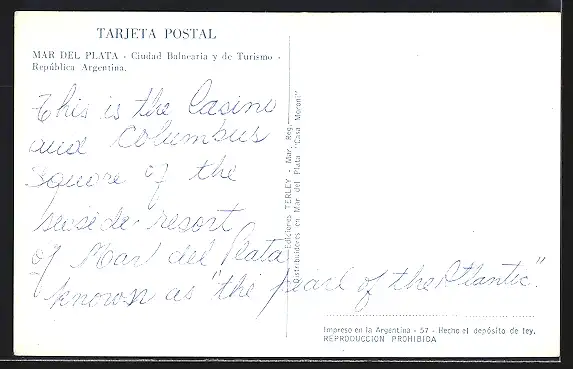 TARJETA POSTAL
MAR DEL PLATA - Ciudad Balnearia y de Turismo -
República Argentina.
This is the Casino
and Columbus
Square of the
seaside resort
of Mar del Plata
known as "the pearl of the Atlantic".
Ediciones TERLEY - Mar. Reg.
Distribuidores en Mar del Plata "Casa Moroni"
Impreso en la Argentina - 57 - Hecho el depósito de ley.
REPRODUCCION PROHIBIDA